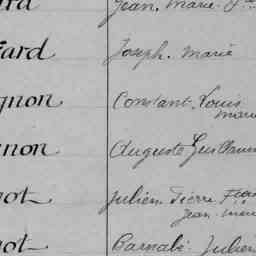 Jean. Marie.
Joseph. Marie
gnon Constant. Louis
Marie
non Auguste Guillaume
not Julien Pierre
Jean. Marie
not Barnabé. Julien